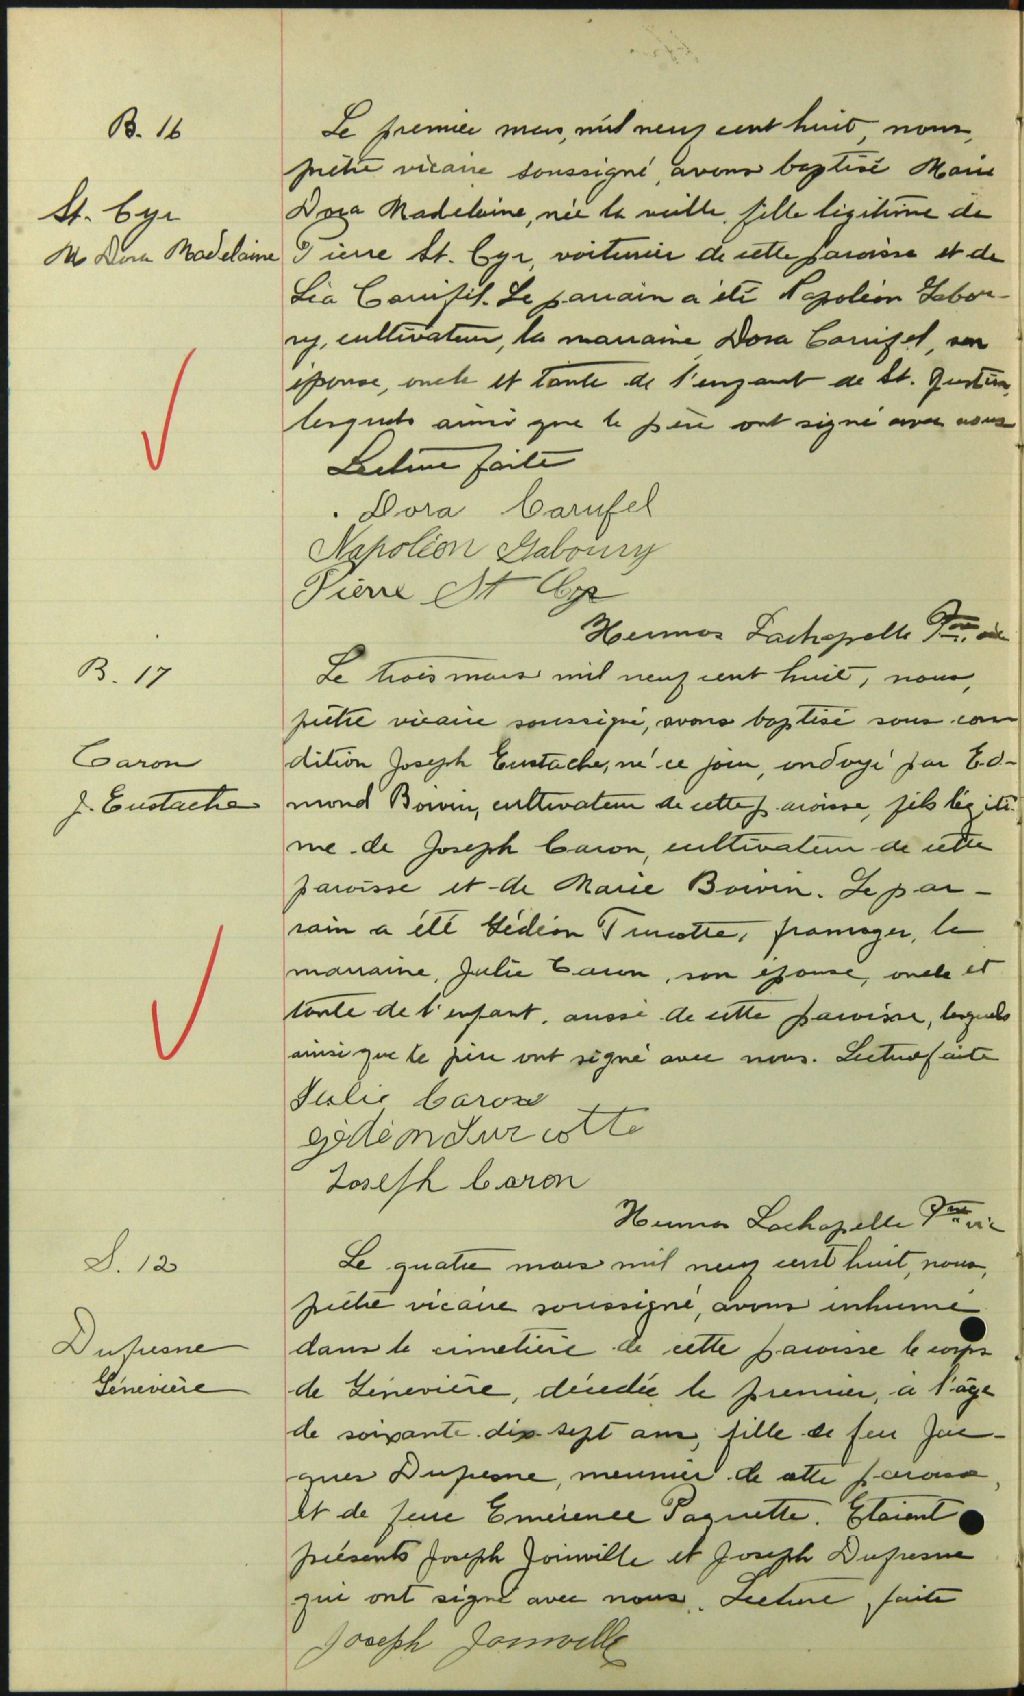 B. 16
St. Cyr
M Dora Madelaine
Le premier mars, mil neuf cent huit, nous,
prêtre vicaire soussigné, avons baptisé Marie
Dora Madeleine, née la veille, fille légitime de
Pierre St. Cyr, voiturier de cette paroisse et de
Léa Carufel. Le parrain a été Napoléon Gabou-
ry, cultivateur, la marraine Dora Carufel, son
épouse, oncle et tante de l'enfant de St. Justin,
lesquels ainsi que le père ont signé avec nous
Lecture faite
Dora Carufel
Napoléon Gaboury
Pierre St Cyr
Hermas Lachapelle Ptre. vic
B. 17
Caron
J. Eustache
Le trois mars mil neuf cent huit, nous,
prêtre vicaire soussigné, avons baptisé sous con
dition Joseph Eustache, né ce jour, ondoyé par Ed-
mond Boivin, cultivateur de cette paroisse, fils légiti-
me de Joseph Caron, cultivateur de cette
paroisse et de Marie Boivin. Le par-
rain a été Gédéon Turcotte, fromager, la
marraine, Julie Caron, son épouse, oncle et
tante de l'enfant, aussi de cette paroisse, lesquels
ainsi que le père ont signé avec nous. Lecture faite
Julie Caron
Gédéon Turcotte
Joseph Caron
Hermas Lachapelle Ptre vic
S. 12
Dufresne
Génevière
Le quatre mars mil neuf cent huit, nous,
prêtre vicaire soussigné, avons inhumé
dans le cimetière de cette paroisse le corps
de Génevière, décédée le premier, à l'âge
de soixante-dix-sept ans, fille de feu Jac-
ques Dufresne, meunier de cette paroisse,
et de feue Emérence Paquette. Etaient
présents Joseph Joinville et Joseph Dufresne
qui ont signé avec nous. Lecture faite
Joseph Joinville